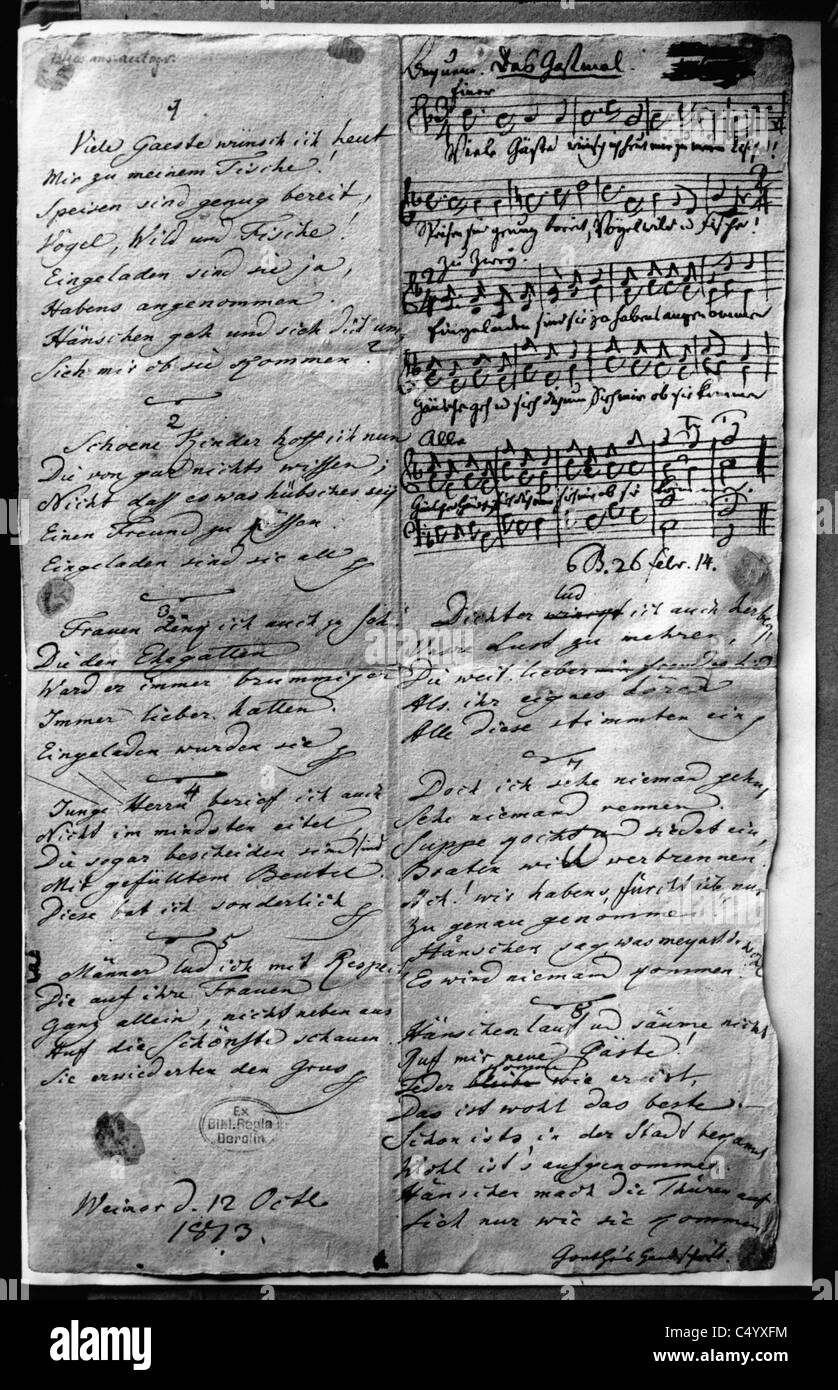 1
Viele Gaeste wünsch ich heut
Mir zu meinem Tische!
Speisen sind genug bereit,
Vögel, Wild und Fische!
Eingeladen sind sie ja,
Habens angenommen.
Hänschen geh und sieh dich um,
Sieh mir ob sie kommen?
2
Schoene Kinder hoff ich nun
Die von gar nichts wissen;
Nicht dass es was hübsches sey
Einen Freund zu küssen.
Eingeladen sind sie all
3
Frauen denck ich auch zu
Die den Ehegatten
Ward er immer brummiger
Immer lieber hatten.
Eingeladen wurden sie
4
Junge Herrn berief ich auch
Nicht im mindsten eitel,
Die sogar bescheiden sind
Mit gefülltem Beutel.
Diese bat ich sonderlich
5
Männer lud ich mit Respect
Die auf ihre Frauen
Ganz allein, nicht neben aus
Auf die Schönste schauen.
Sie erwiederten den Grus
Ex
Bibl. Regia
Berolin
Weimar d. 12 Octb
1813.
Bequem. Das Gastmal.
Einer
Viele Gäste wünsch ich heut mir zu meinem Tische!
Speisen sind genug bereit, Vögel wild u Fische!
Zu Zwey.
Eingeladen sind sie ja haben's angenommen
Hänschen geh u sieh dich um Sieh mir ob sie kommen
Alle
Hänschen sieh dich um sieh mir ob sie kommen.
B. 26 febr. 14.
lud
Dichter ich auch herbey
Unsre Lust zu mehren,
Die weit lieber
Als ihr eignes hören
Alle diese stimmten ein
7
Doch ich sehe niemand gehn,
Sehe niemand rennen.
Suppe kocht und siedet ein,
Braten will verbrennen.
Ach! wir habens, fürcht ich, nun
Zu genau genommen
Hänschen sag was meynst du wohl
Es wird niemand kommen.
8
Hänschen lauf und säume nicht
Ruf mir neue Gäste!
komme
Jeder bleibe wie er ist,
Das ist wohl das beste.
Schon ists in der Stadt bekannt
Wohl ist's aufgenommen.
Hänschen mach die Thüren auf
Sieh nur wie sie kommen
Goethe's Handschrift.
alamy
Image ID: C4YXFM
www.alamy.com